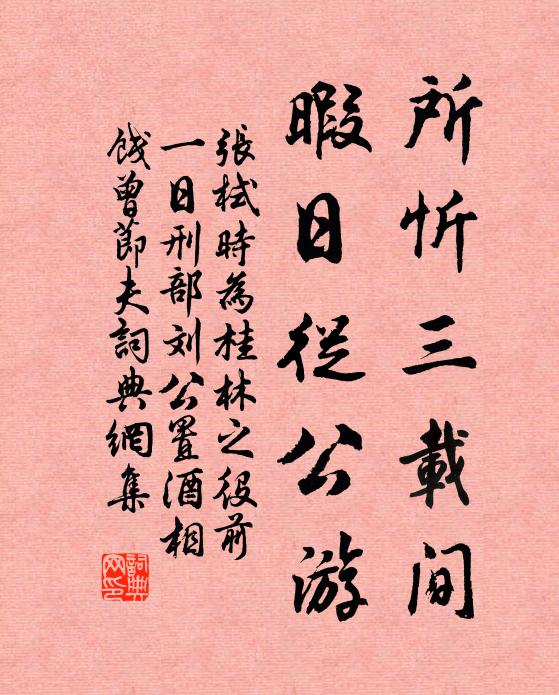 所忻三載间
暇日從公游
張栻時為桂林之役前
一日刑部刘公置酒相
餞曾節夫詞典網集
詞典网印